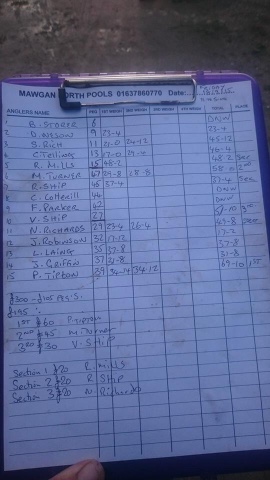 MAWGAN NORTH POOLS 01637860770 Date:
ANGLERS NAME PEG 1ST WEIGH 2ND WEIGH 3RD WEIGH 4TH WEIGH TOTAL PLACE
1 B. STORER 6 DNW
2 D. WASON 9 23-4 23-4
3 S. RICH 11 21-0 24-12 45-12
4 C. Telling 13 17-0
5 R. MILLS 15 48-2 48-2 Sec
6 M. TURNER 47 29-8 28-8 58-0 2nd
7 R. SHIP 45 37-4 37-4 Sec
8 C. Cotterill 44 DNW
9 F. PARKER 42 DNW
10 V. SHIP 27 3rd
11 N. RICHARDS 29 26-4 Sec
12 J. ROBINSON 32 17-12
13 L. LAING 35 37-8 37-8
14 J. GRIFFIN 37 31-8 31-8
15 P. TIPTON 39 34-14 34-12 69-10 1st
£195
1st £60 P. Tipton
2nd £45 M. Turner
3rd £30 V. Ship
Section 1 £20 R. Mills
Section 2 £20 R Ship
Section 3 £20 N. Richards